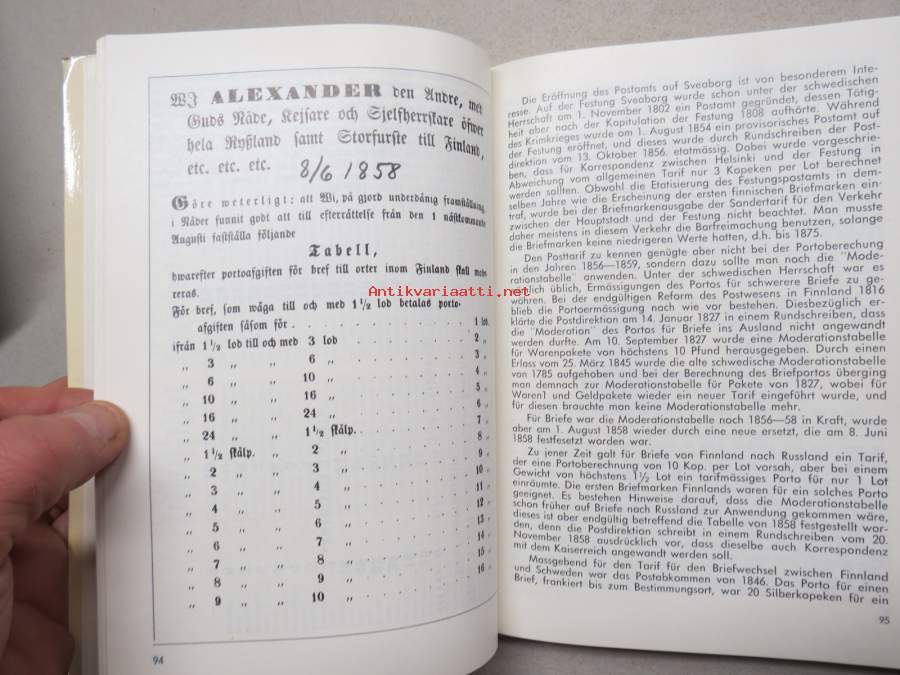 Wi ALEXANDER den Andre, med
Guds Nåde, Kejsare och Sjelfherrskare öfwer
hela Ryßland samt Storfurste till Finland,
etc. etc. etc.
8/6 1858
Göre weterligt: att Wi, på gjord underdånig framställning,
i Nåder funnit godt att till efterrättelse från den 1 nästkommande
Augusti fastställa följande
Tabell,
hwarefter portoafgiften för bref till orter inom Finland skall
teras.
För bref, som wäga till och med 1 1/2 lod betalas porto-
afgiften såsom för . . . . . . . . . . . 1 lod.
ifrån 1 1/2 lod till och med 3 lod . . . . . . . 2 „
„ 3 „ „ 6 „ . . . . . . . 3 „
„ 6 „ „ 10 „ . . . . . . . 4 „
„ 10 „ „ 16 „ . . . . . . . 5 „
„ 16 „ „ 24 „ . . . . . . . 6 „
„ 24 „ „ 1 1/2 skålp. . . . . . . 7 „
„ 1 1/2 skålp. „ 2 „ . . . . . . . 8 „
„ 2 „ „ 3 „ . . . . . . . 9 „
„ 3 „ „ 4 „ . . . . . . . 10 „
„ 4 „ „ 5 „ . . . . . . . 11 „
„ 5 „ „ 6 „ . . . . . . . 12 „
„ 6 „ „ 7 „ . . . . . . . 13 „
„ 7 „ „ 8 „ . . . . . . . 14 „
„ 8 „ „ 9 „ . . . . . . . 15 „
„ 9 „ „ 10 „ . . . . . . . 16 „
94
Antikvariaatti.net
Die Eröffnung des Postamts auf Sveaborg ist von besonderem Inte-
resse. Auf der Festung Sveaborg wurde schon unter der schwedischen
Herrschaft am 1. November 1802 ein Postamt gegründet, dessen Tätig-
heit aber nach der Kapitulation der Festung 1808 aufhörte. Während
des Krimkrieges wurde am 1. August 1854 ein provisorisches Postamt auf
der Festung eröffnet, und dieses wurde durch Rundschreiben der Post-
direktion vom 13. Oktober 1856. etatmässig. Dabei wurde vorgeschrie-
ben, dass für Korrespondenz zwischen Helsinki und der Festung in
Abweichung vom allgemeinen Tarif nur 3 Kopeken per Lot berechnet
werden sollten. Obwohl die Etatisierung des Festungspostamts in dem-
selben Jahre wie die Erscheinung der ersten finnischen Briefmarken ein-
traf, wurde bei der Briefmarkenausgabe der Sondertarif für den Verkehr
zwischen der Hauptstadt und der Festung nicht beachtet. Man musste
daher meistens in diesem Verkehr die Barfreimachung benutzen, solange
die Briefmarken keine niedrigeren Werte hatten, d.h. bis 1875.
Den Posttarif zu kennen genügte aber nicht bei der Portoberechung
in den Jahren 1856—1859, sondern dazu sollte man noch die "Mode-
rationstabelle" anwenden. Unter der schwedischen Herrschaft war es
nämlich üblich, Ermässigungen des Portos für schwerere Briefe zu ge-
währen. Bei der endgültigen Reform des Postwesens in Finnland 1816
blieb die Portoermässigung nach wie vor bestehen. Diesbezüglich er-
klärte die Postdirektion am 14. Januar 1827 in einem Rundschreiben, dass
die "Moderation" des Portos für Briefe ins Ausland nicht angewandt
werden durfte. Am 10. September 1827 wurde eine Moderationstabelle
für Warenpakete von höchstens 10 Pfund herausgegeben. Durch einen
Erlass vom 25. März 1845 wurde die alte schwedische Moderationstabelle
von 1785 aufgehoben und bei der Berechnung des Briefportos überging
man demnach zur Moderationstabelle für Pakete von 1827, wobei für
Waren1 und Geldpakete wieder ein neuer Tarif eingeführt wurde, und
für diesen brauchte man keine Moderationstabelle mehr.
Für Briefe war die Moderationstabelle noch 1856—58 in Kraft, wurde
aber am 1. August 1858 wieder durch eine neue ersetzt, die am 8. Juni
1858 festfesetzt worden war.
Zu jener Zeit galt für Briefe von Finnland nach Russland ein Tarif,
der eine Portoberechnung von 10 Kop. per Lot vorsah, aber bei einem
Gewicht von höchstens 1½ Lot ein tarifmässiges Porto für nur 1 Lot
einräumte. Die ersten Briefmarken Finnlands waren für ein solches Porto
geeignet. Es bestehen Hinweise darauf, dass die Moderationstabelle
schon früher auf Briefe nach Russland zur Anwendung gekommen wäre,
dieses ist aber endgültig betreffend die Tabelle von 1858 festgestellt wor-
den, denn die Postdirektion schreibt in einem Rundschreiben vom 20.
November 1858 ausdrücklich vor, dass dieselbe auch Korrespondenz
mit dem Kaiserreich angewandt werden soll.
Massgebend für den Tarif für den Briefwechsel zwischen Finnland
und Schweden war das Postabkommen von 1846. Das Porto für einen
Brief, frankiert bis zum Bestimmungsort, war 20 Silberkopeken für ein
95